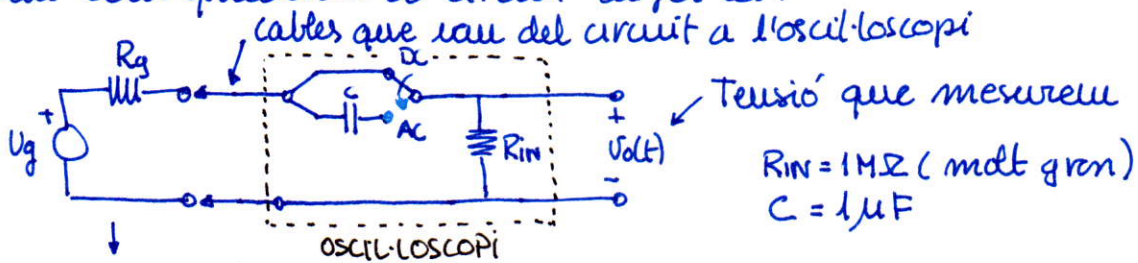 cables que van del circuit a l'oscil·loscopi
Rg
DC
C
AC
+
Ug
RIN
+
Vo(t)
-
Tensió que mesurem
RIN = 1MΩ (molt gran)
C = 1µF
OSCIL·LOSCOPI